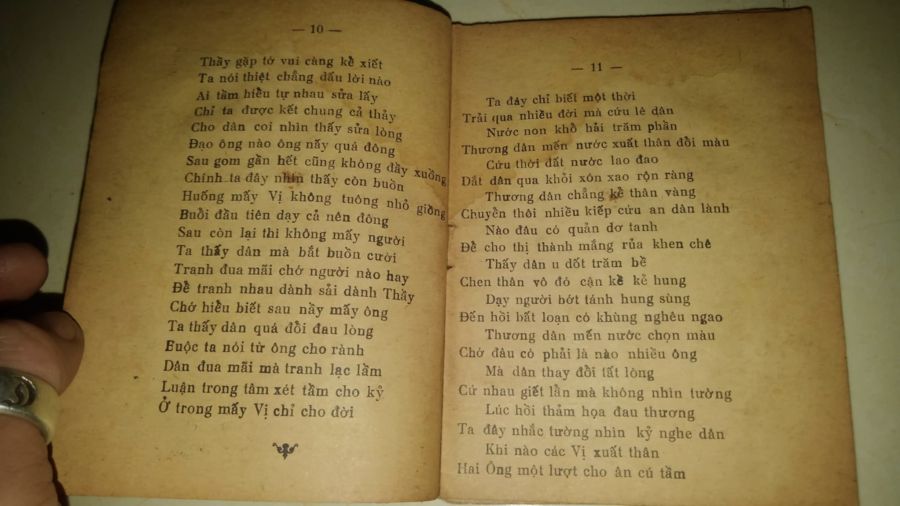 — 10 —
Thầy gặp tớ vui càng kể xiết
Ta nói thiệt chẳng dấu lời nào
Ai tầm hiểu tự nhau sửa lấy
Chỉ ta được kết chung cả thảy
Cho dân coi nhìn thấy sửa lòng
Đạo ông nào ông nấy quá đông
Sau gom gần hết cũng không đầy xuồng
Chính ta đây nhìn thấy còn buồn
Huống mấy Vị không tuông nhỏ giồng
Buổi đầu tiên dạy cả nên đông
Sau còn lại thi không mấy người
Ta thấy dân mà bắt buồn cười
Tranh đua mãi chớ người nào hay
Để tranh nhau dành sải dành Thầy
Chớ hiểu biết sau nầy mấy ông
Ta thấy dân quá đổi đau lòng
Buộc ta nói từ ông cho rành
Dân đua mãi mà tranh lạc lầm
Luận trong tâm xét tầm cho kỷ
Ở trong mấy Vị chỉ cho đời
— 11 —
Ta đây chỉ biết một thời
Trải qua nhiều đời mà cứu lê dân
Nước non khổ hải trăm phần
Thương dân mến nước xuất thân đổi màu
Cứu thời đất nước lao đao
Dắt dân qua khỏi xôn xao rộn ràng
Thương dân chẳng kể thân vàng
Chuyển thôi nhiều kiếp cứu an dân lành
Nào đâu có quản dơ tanh
Để cho thị thành mắng rủa khen chê
Thấy dân u dốt trăm bề
Chen thân vô đó cận kề kẻ hung
Dạy người bớt tánh hung sùng
Đến hồi bất loạn có khùng nghêu ngao
Thương dân mến nước chọn màu
Chờ đâu có phải là nào nhiều ông
Mà dân thay đổi tất lòng
Cứ nhau giết lần mà không nhìn tường
Lúc hồi thảm họa đau thương
Ta đây nhắc tường nhìn kỷ nghe dân
Khi nào các Vị xuất thân
Hai Ông một lượt cho ân cú tầm